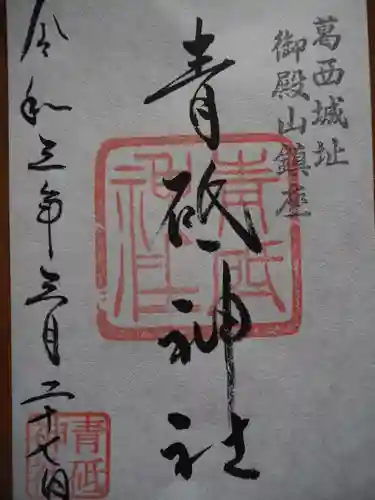 葛西城址
御殿山鎮座
青砥神社
令和三年三月二十七日
青砥神社
青砥神社